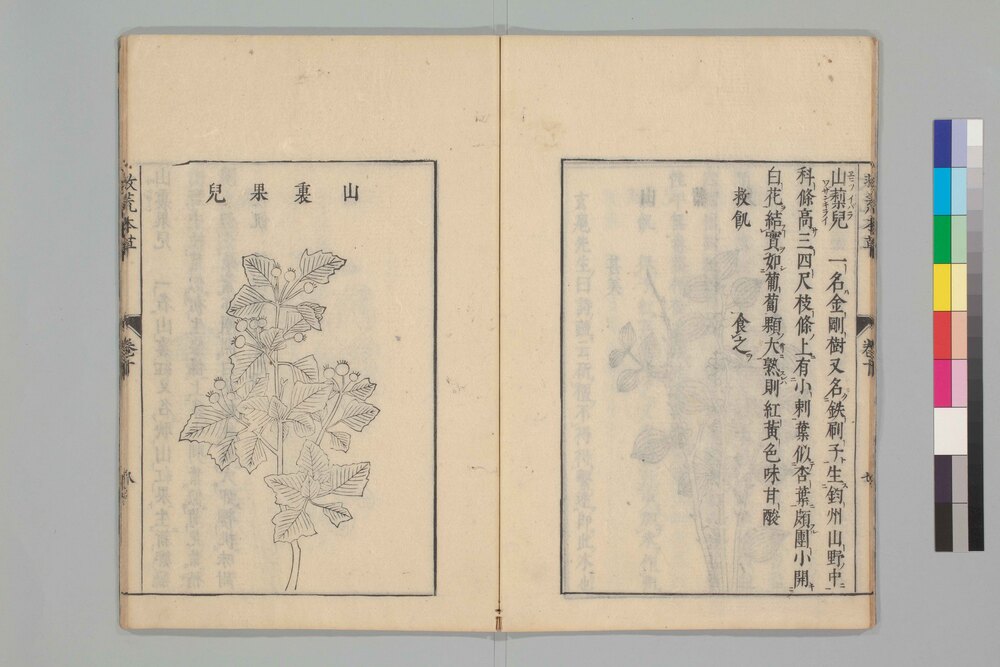 山梨兒 一名金剛樹又名鉄刷子生鈞州山野中
科條高三四尺枝條上有小刺葉似杏葉頗團小開
白花結實如葡萄顆大熟則紅黃色味甘酸
救飢 食之
山裏果兒
救荒本草
卷十
救荒本草
卷十
八